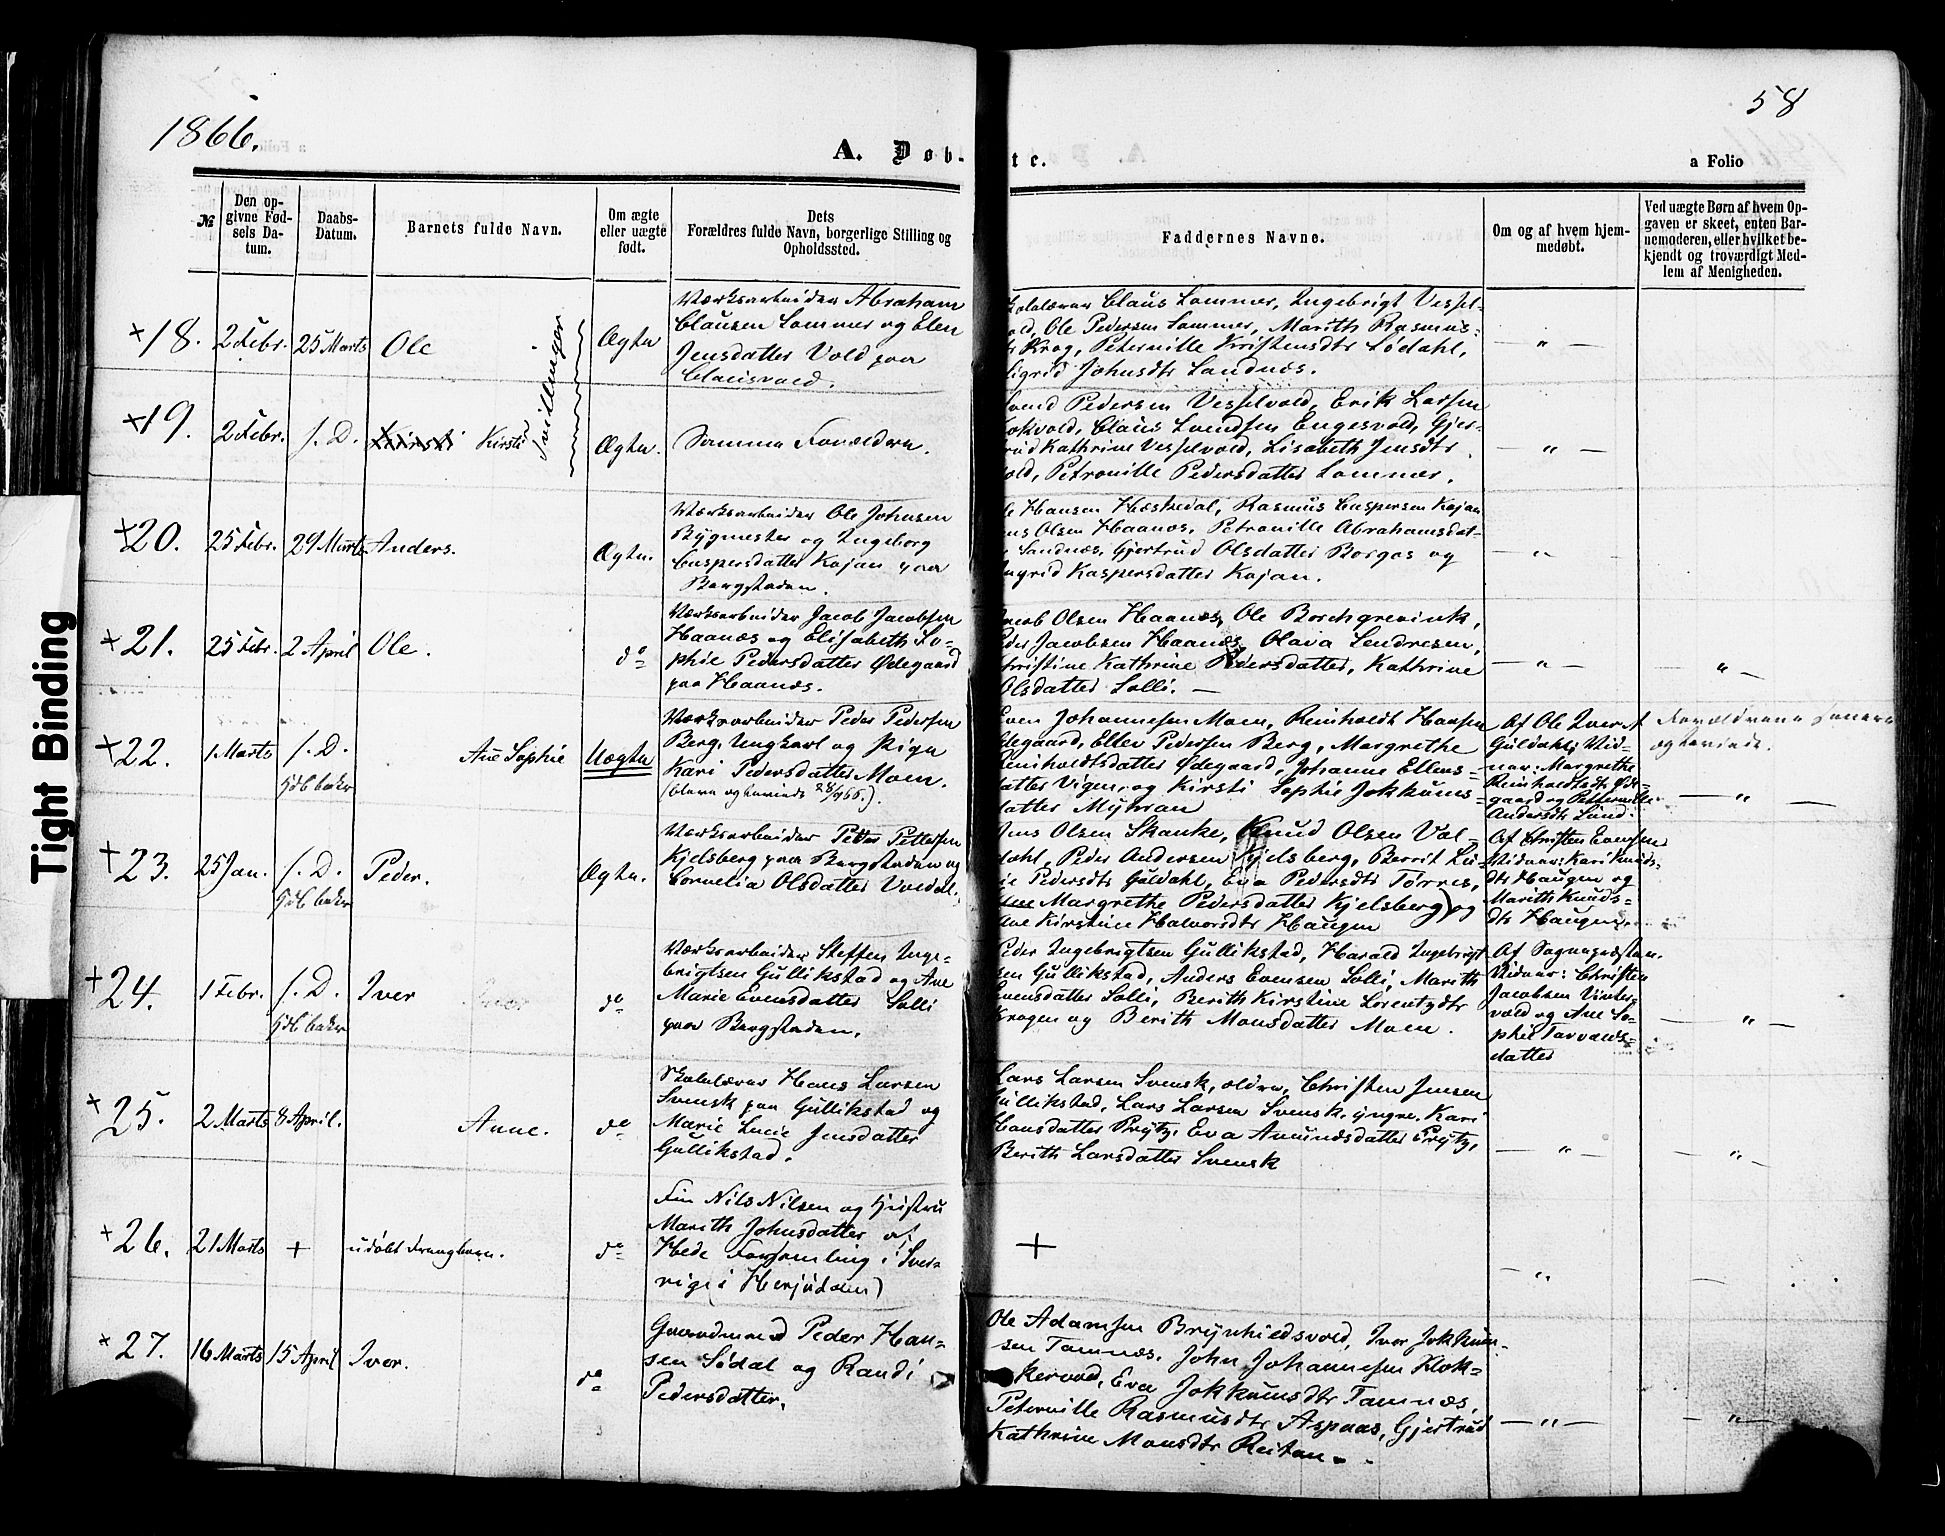 1866.
58
A. Døb-
te.
a Folio
№
Den op-
givne Fød-
sels Da-
tum.
Daabs-
Datum.
Barnets fulde Navn.
Om ægte
eller uægte
født.
Dets
Forældres fulde Navn, borgerlige Stilling og
Opholdssted.
Faddernes Navne.
Om og af hvem hjem-
medøbt.
Ved uægte Børn af hvem Op-
gaven er skeet, enten Bar-
nemoderen, eller hvilket be-
kjendt og troværdigt Med-
lem af Menigheden.
+ 18. 2 Febr. 25 Marts Ole
Tvillinger
Ægte
Værksarbeider Abraham
Clausen Lammer og Elen
Jensdatter Vold paa
Clausvold.
Claus Lammer, Ingebrigt Vessel-
vold, Ole Pedersen Lammer, Marith Rasmus-
Krog, Peternille Kristensdtr Lødahl,
Sigrid Johnsdtr Sandnæs.
— " —
+ 19. 2 Febr. s. D. Kirsti Kirsti
Ægte.
Samme Forældre.
Svend Pedersen Vesselvold, Erik Larsen
Claus Svendsen Engesvold, Gjer-
trud Kathrine Vesselvold, Lisabeth Jensdtr
Vold, Petronille Pedersdatter Lammer.
— " —
+ 20. 25 Febr. 29 Marts Anders.
Ægte.
Værksarbeider Ole Johnsen
Bygmester og Ingeborg
Caspersdatter Kojan paa
Bergstaden.
Ole Hansen Hæskedal, Rasmus Caspersen Kojan
Jens Olsen Haanæs, Petronille Abrahamsdat-
Sandnæs, Gjertrud Olsdatter Borgos og
Ingrid Kaspersdatter Kojan.
— " —
+ 21. 25 Febr. 2 April Ole.
do
Værksarbeider Jacob Jacobsen
Haanæs og Elisabeth So-
phie Pedersdatter Ødegaard
paa Haanæs.
Jacob Olsen Haanæs, Ole Borchgrevink,
Peder Jacobsen Haanæs, Olava Sendresen,
Christine Kathrine Pedersdatter, Kathrine
Olsdatter Solli. —
— " —
— " —
+ 22. 1 Marts s. D.
hjdb bekr
Ane Sophie
Uægte
Værksarbeider Peder Pedersen
Berg, Ungkarl og Pige
Kari Pedersdatter Moen.
Even Johannesen Moen, Reinholdt Hansen
Ødegaard, Ellev Pedersen Berg, Margrethe
Reinholdtsdatter Ødegaard, Johanne Ellevs-
datter Vigen og Kirsti Sophie Jokkums-
datter Myhran
Af Ole Iver A
Guldahl; Vid-
ner: Margrethe
Reinholdtsdtr Øde-
gaard og Petternille
Andersdtr Lund.
Forældrene senere
ægteviede.
— " —
+ 23. 25 Jan. s. D.
hjdb bekr
Peder.
Ægte.
Værksarbeider Petter Pettersen
Kjelsberg paa Bergstaden og
Cornelia Olsdatter Voldal.
Jens Olsen Skanke, Knud Olsen Vol-
dahl, Peder Andersen Kjelsberg, Berrit Lu-
cie Pedersdtr Guldahl, Eva Pedersdtr Tørres,
Ane Margrethe Pedersdatter Kjelsberg) og
Ane Kirstine Halvorsdtr Haugen
Af Christen Evensen
Vidner: Kari Knuds-
dtr Haugen og
Marith Knuds-
dtr Haugen.
+ 24. 1 Febr. s. D.
hjdb bekr
Iver
do
Værksarbeider Steffen Inge-
brigtsen Gullikstad og Ane
Marie Evensdatter Solli
paa Bergstaden.
Peder Ingebrigtsen Gullikstad, Harald Ingebrigt
sen Gullikstad, Anders Evensen Solli, Marith
Evensdatter Solli, Berith Kirstine Lorentzdtr
Krogen og Berith Monsdatter Moen.
Af Sognepræsten.
Vidner: Christen
Jacobsen Vinter-
vold og Ane So-
phie Torvalds-
datter
— " —
+ 25. 2 Marts 8 April.
Anne.
do
Skolelærer Hans Larsen
Svensk paa Gullikstad og
Marie Lucie Jensdatter
Gullikstad.
Lars Larsen Svensk, ældre, Christen Jensen
Gullikstad, Lars Larsen Svensk, yngre. Kari
Hansdatter Prytz, Eva Amundsdatter Prytz,
Berith Larsdatter Svensk
— " —
— " —
+ 26. 21 Marts +
udøbt Drengebarn.
do
Fin Nils Nilsen og Hustru
Marith Johnsdatter af
Hede Forsamling i Sver-
rige i Herjedalen)
+
— " —
—
× 27. 16 Marts 15 April Iver.
do
Gaardmand Peder Han-
sen Sødal og Randi
Pedersdatter.
Ole Adamsen Brynhildsvold, Iver Jokkum-
sen Tamnæs, John Johannesen Klok-
kervold, Eva Jokkumsdtr Tamnæs,
Peternille Rasmusdtr Aspaas, Gjertrud
Kathrine Monsdtr Reitan.
— " —
— " —
Tight Binding